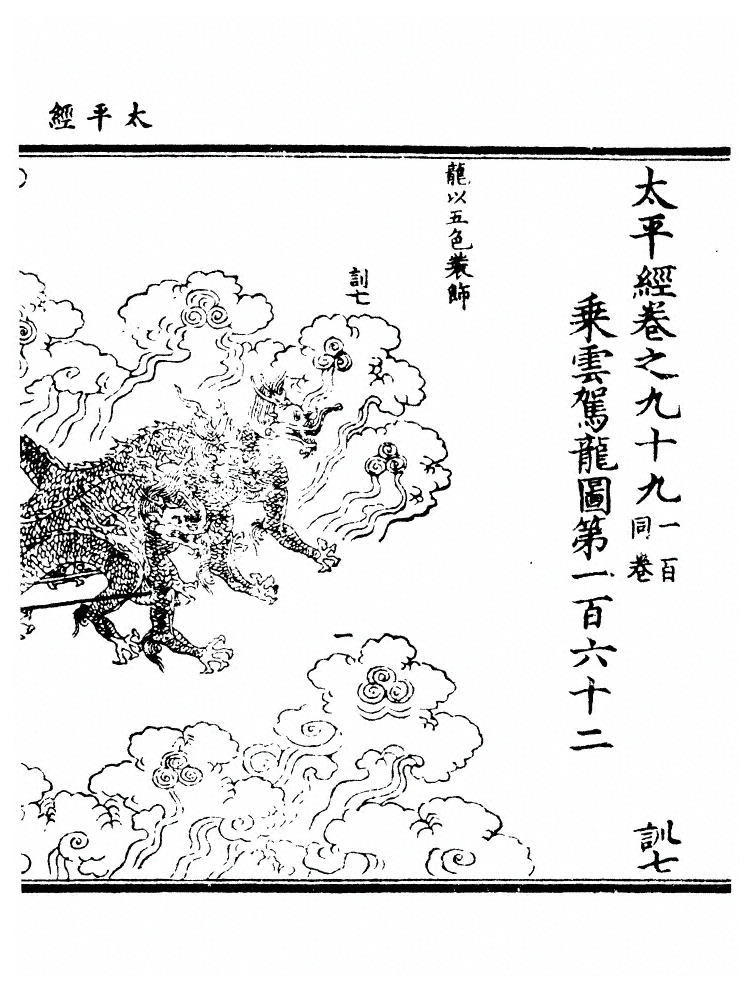 太平經
太平經卷之九十九
一百
同卷
訓七
乘雲駕龍圖第一百六十二
龍以五色裝飾
訓七
一